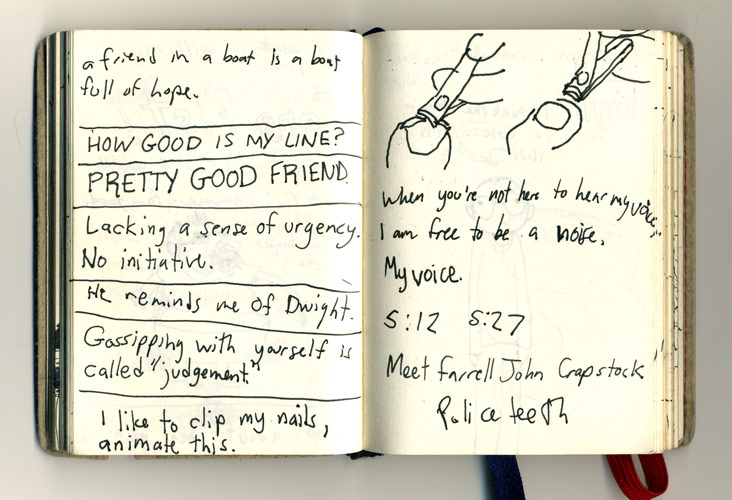 a friend in a boat is a boat
full of hope.
HOW GOOD IS MY LINE?
PRETTY GOOD FRIEND.
Lacking a sense of urgency.
No initiative.
He reminds me of Dwight.
Gossipping with yourself is
called "judgement."
I like to clip my nails,
animate this.
When you're not here to hear my voice,
I am free to be a noise.
My voice.
5:12 5:27
Meet Farrell John Crapstock
Police teeth